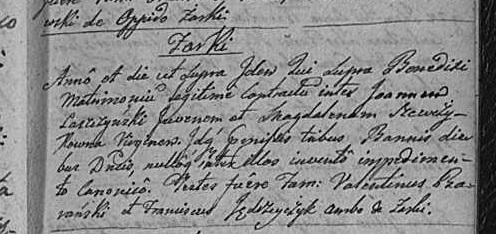 wski de Oppido Żarki.
Żarki
Anno et die ut Supra Idem Qui Supra Benedixi
Matrimoniũ legitime Contractũ inter Joannem
Juvenem et Magdalenam
Virginem. Idq̃ premissis tribus Bannis die
bus Dñicis, nulloq̃ inter illos invento impedimen-
to Canonico. Testes fuere Fam: Valentinus
et Franciscus Jędrzejczyk ambo de Żarki.